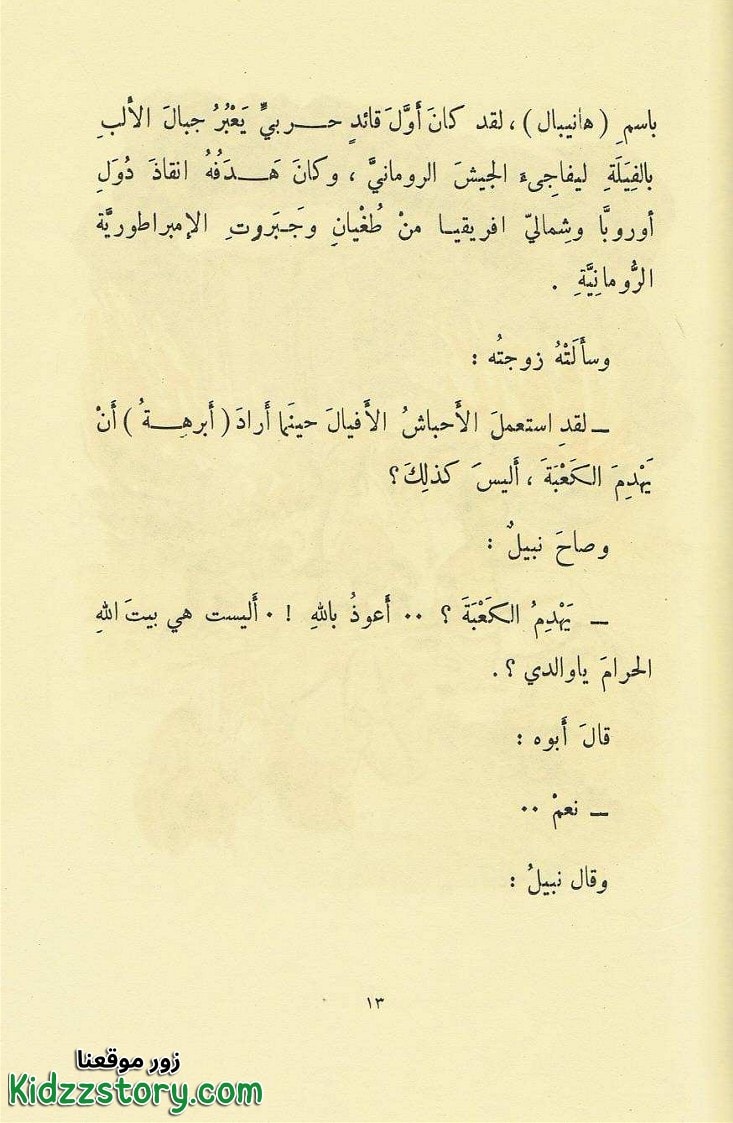 باسمِ (هانيبال) ، لقد كانَ أَوَّلَ قائدٍ حــربيٍّ يَعْبُرُ جبالَ الألبِ
بالفِيَلَةِ ليفاجِىءَ الجيشَ الرومانيَّ ، وكانَ هَــدَفُهُ انقاذَ دُوَلِ
أوروبَّا وشِماليّ افريقيــا منْ طُغْيانِ وجَبَروتِ الإمبراطوريَّة
الرُّومانِيَّةِ .
وسأَلَتْهُ زوجتُه :
ــ لقدِ استعملَ الأَحباشُ الأَفيالَ حينَما أَرادَ (أَبرهــةُ) أَنْ
يَهْدِمَ الكَعْبَةَ ، أَليسَ كذلِكَ؟
وصاحَ نبيلٌ :
ــ يَهْدِمُ الكَعْبَةَ ؟ .. أَعوذُ باللهِ ! . أَليست هي بيتَ اللهِ
الحرامَ ياوالدي ؟ .
قالَ أَبوه :
ــ نعمْ ..
وقال نبيلُ :
١٣
زور موقعنا
Kidzzstory.com